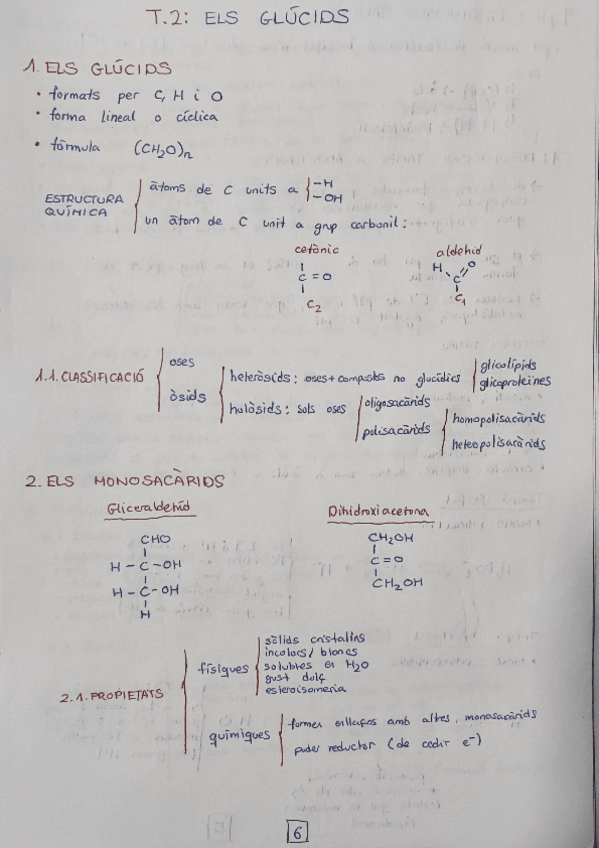 T.2: ELS GLÚCIDS
1. ELS GLÚCIDS
• formats per C, H i O
• forma lineal o cíclica
• fórmula (CH₂O)n
ESTRUCTURA QUÍMICA
àtoms de C units a
-H
-OH
un àtom de C unit a grup carbonil:
cetònic
aldehid
C=O
C₂
H
O
C
C₁
1.1. CLASSIFICACIÓ
oses
òsids
heteròsids: oses + compostos no glucídics
glicolípids
glicoproteïnes
holòsids: sols oses
oligosacàrids
polisacàrids
homopolisacàrids
heteropolisacàrids
2. ELS MONOSACÀRIDS
Gliceraldehid
Dihidroxiacetona
CHO
H-C-OH
H-C-OH
H
CH₂OH
C=O
CH₂OH
2.1. PROPIETATS
físiques
sòlids cristalins
incolors / blancs
solubles en H₂O
gust dolç
esteroisomeria
químiques
formen enllaços amb altres monosacàrids
poder reductor (de cedir e⁻)
6